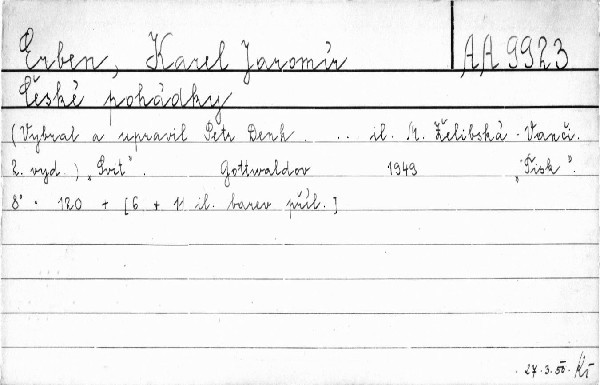 Erben, Karel Jaromír AA 9923
České pohádky
(Vybral a upravil Petr Denk. .. il. M. Želibská-Vanči.
2. vyd.) „Svit“. Gottwaldov 1949 „Tisk“.
8° . 120 + [6 + 1 il. barev příl.]
27.3.50. Kř